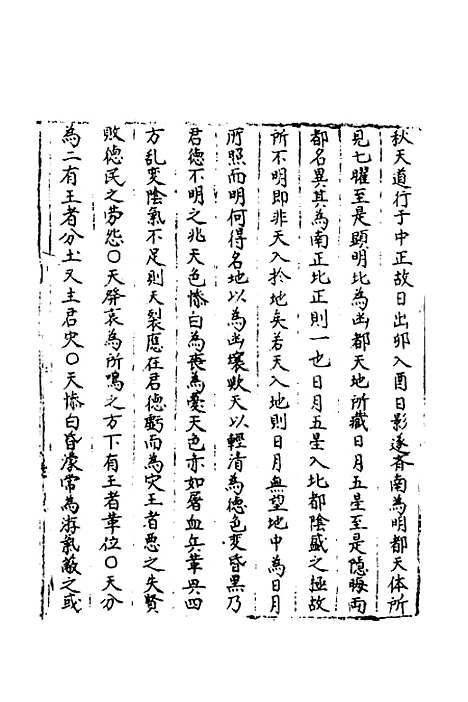 秋天道行于中正故日出卯入酉日影遂斉南為明都天体所
見七曜至是顕明北為幽都天地所藏日月五星至是隠晦両
都名異其為南正北正則一也日月五星入北都陰盛之極故
所不明即非天入於地矣若天入地則日月無望地中為日月
所照而明何得名地以為幽壤歟天以輕清為德色变昏黒乃
君德不明之兆天色惨白為喪為憂天色赤如屠血兵革興四
方乱变陰氣不足則天裂應在君德虧而為灾王者悪之失賢
敗德民之劳怨〇天聲哀為所鳴之方下有王者革位〇天分
為二有王者分土又主君灾〇天惨白昏濛常為游氣蔽之或